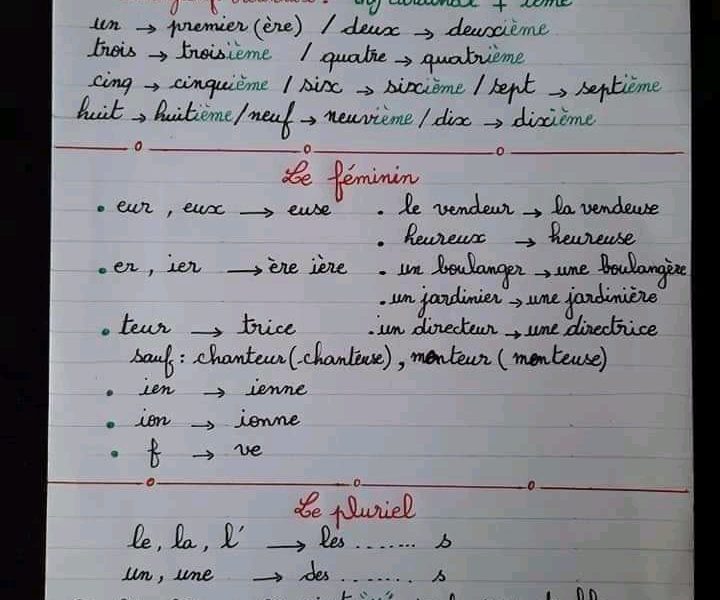 un → premier (ère) / deux → deuxième
trois → troisième / quatre → quatrième
cinq → cinquième / six → sixième / sept → septième
huit → huitième / neuf → neuvième / dix → dixième
Le féminin
• eur, eux → euse • le vendeur → la vendeuse
• heureux → heureuse
• er, ier → ère ière • un boulanger → une boulangère
• un jardinier → une jardinière
• teur → trice • un directeur → une directrice
sauf : chanteur (chanteuse), menteur (menteuse)
• ien → ienne
• ion → ionne
• f → ve
Le pluriel
le, la, l' → les ....... s
un, une → des ........ s